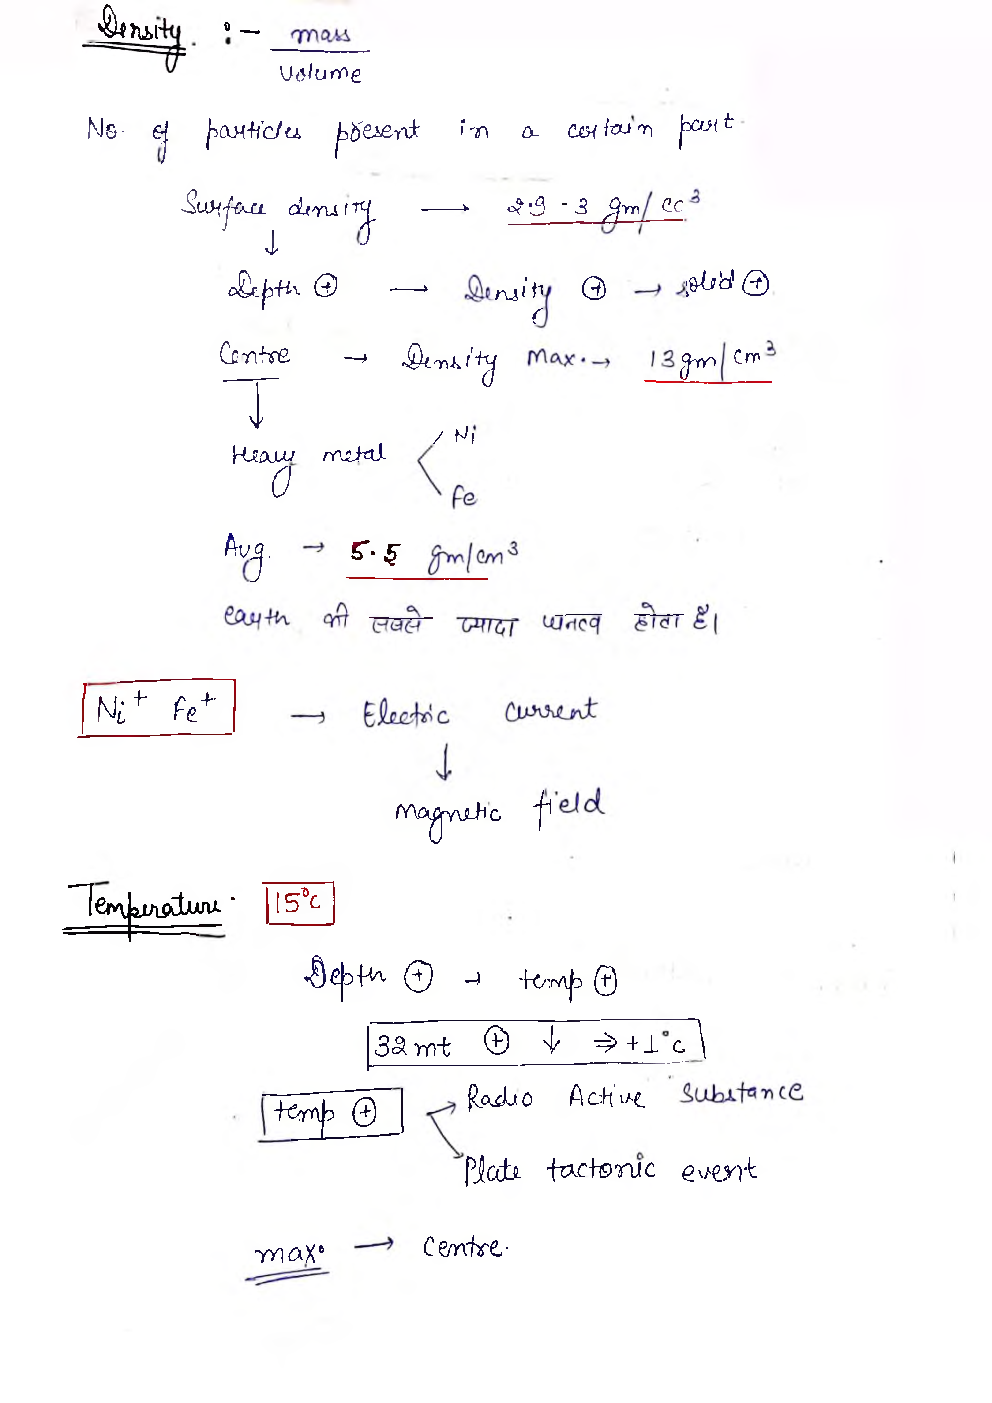 Density. :- mass
volume
No. of particles present in a certain part.
Surface density → 2.9 - 3 gm/cc³
↓
Depth ⊕ → Density ⊕ → solid ⊕
Centre → Density Max. → 13 gm/cm³
↓
Heavy metal < Ni
Fe
Avg. → 5.5 gm/cm³
earth की सबसे ज्यादा घनत्व होता है।
Ni⁺ Fe⁺ → Electric current
↓
Magnetic field
Temperature. 15°C
Depth ⊕ → temp ⊕
32 mt ⊕ ↓ ⇒ +1°C
temp ⊕ → Radio Active Substance
Plate tactonic event
max. → Centre.